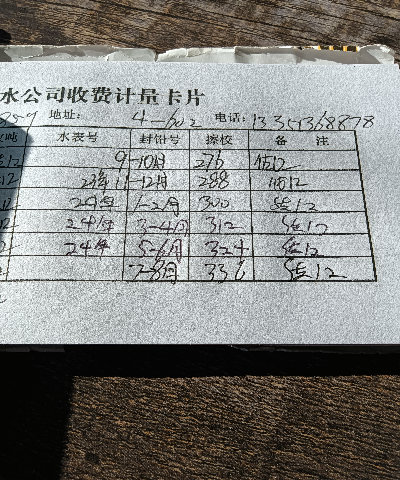 水公司收费计量卡片
地址: 4-602 电话: 13351368878
吨 水表号 封铅号 擦校 备 注
12 9-10月 276 估12
12 23年 11-12月 288 估12
12 24年 1-2月 300 估12
12 24年 3-4月 312 估12
24年 5-6月 324 估12
7-8月 336 估12